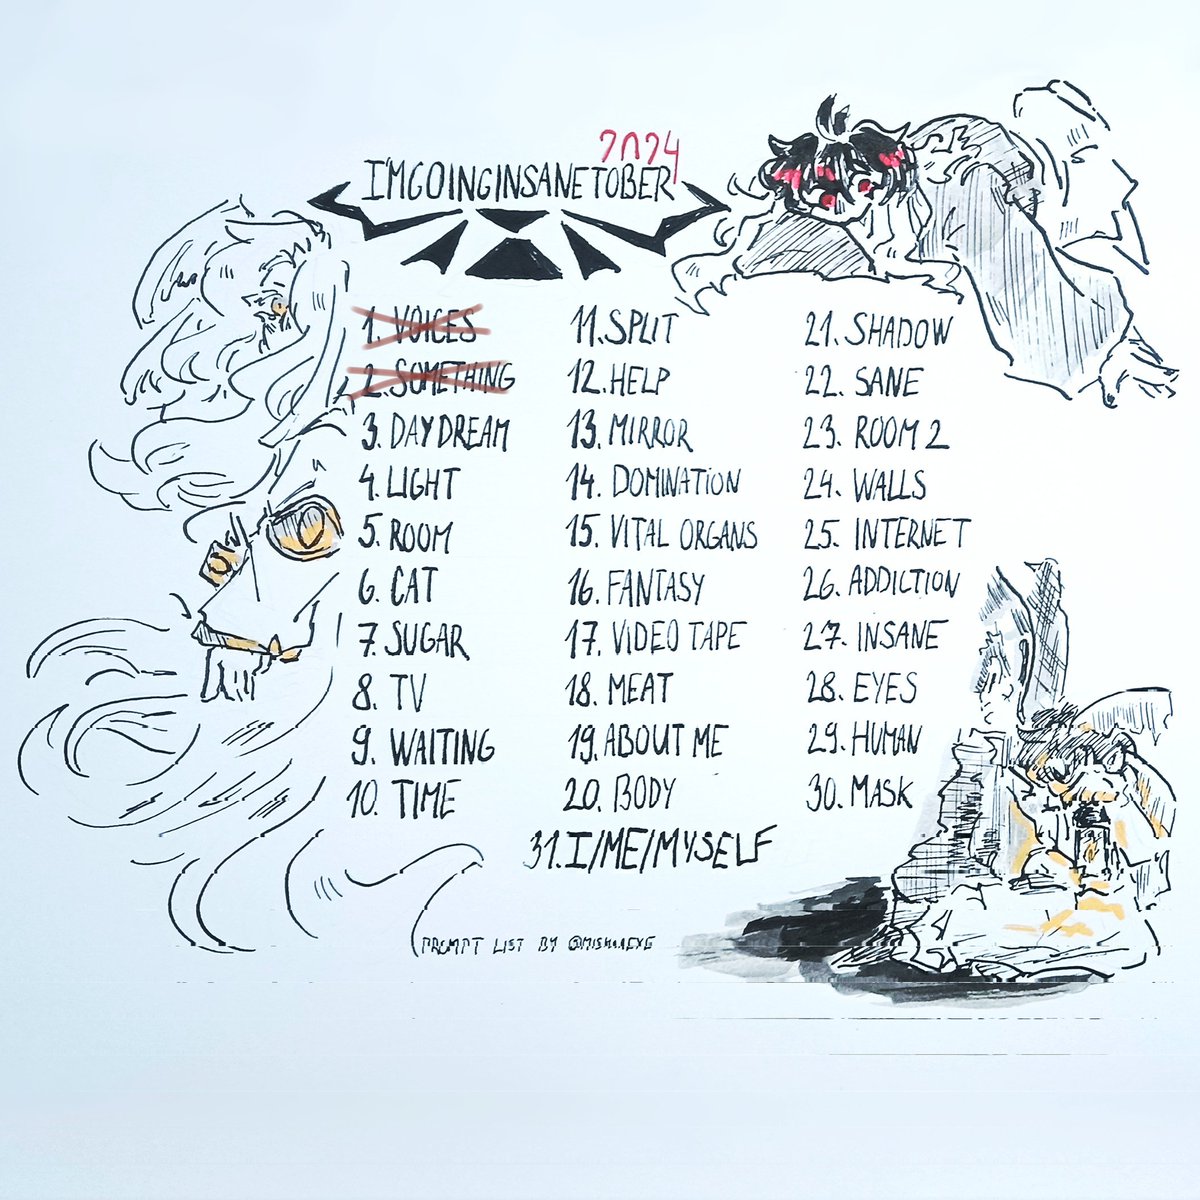 2024
I'MGOINGINSANETOBER
1. VOICES
2. SOMETHING
3. DAYDREAM
4. LIGHT
5. ROOM
6. CAT
7. SUGAR
8. TV
9. WAITING
10. TIME
11. SPLIT
12. HELP
13. MIRROR
14. DOMINATION
15. VITAL ORGANS
16. FANTASY
17. VIDEO TAPE
18. MEAT
19. ABOUT ME
20. BODY
21. SHADOW
22. SANE
23. ROOM 2
24. WALLS
25. INTERNET
26. ADDICTION
27. INSANE
28. EYES
29. HUMAN
30. MASK
31. I/ME/MYSELF
PROMPT LIST BY